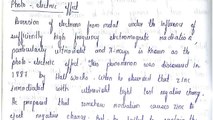 Photo - electric effect
Emission of electrons from metal under the influence of
sufficiently high frequency electromagnetic radiation,
particularly ultraviolet and X-rays is known as the
photo - electric effect. This phenomenon was discovered in
1887 by that when he observed that zinc
irradiated with ultraviolet light lost negative charge.
He proposed that somehow radiation causes zinc to
eject negative charge, but he failed to explain the